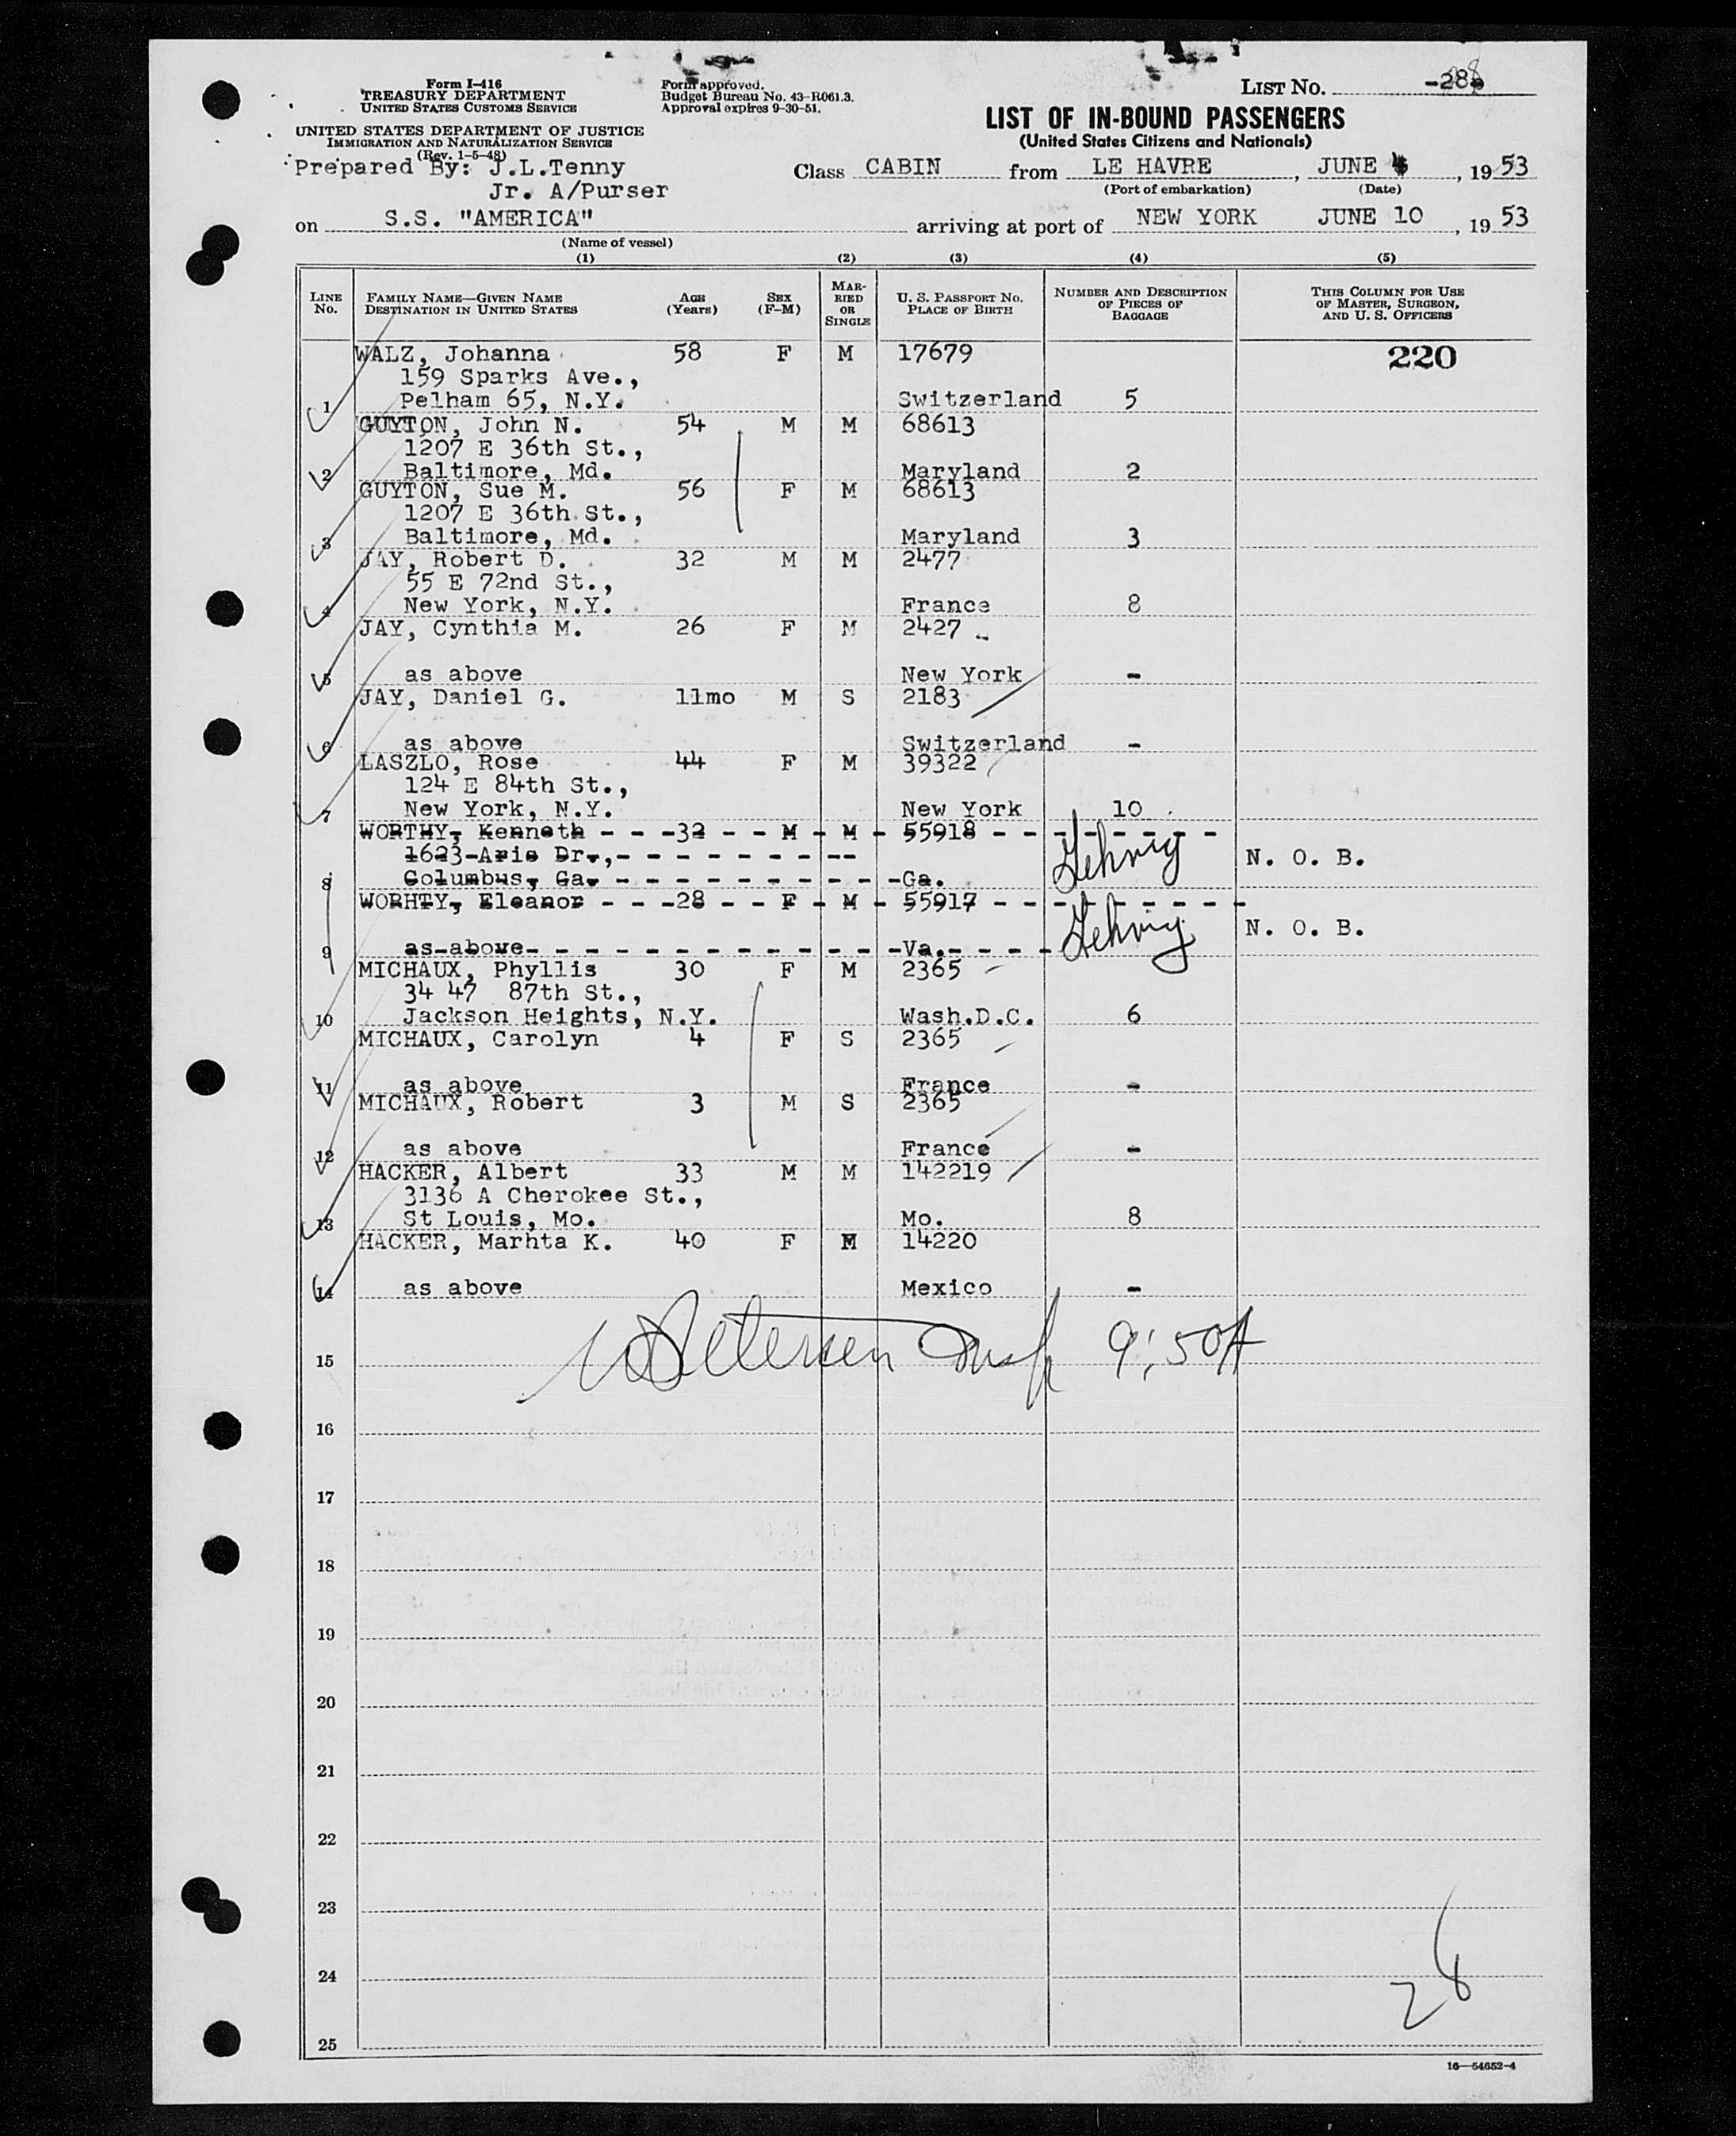 Form I-416
TREASURY DEPARTMENT
UNITED STATES CUSTOMS SERVICE
UNITED STATES DEPARTMENT OF JUSTICE
IMMIGRATION AND NATURALIZATION SERVICE
(Rev. 1-5-48)
Form approved.
Budget Bureau No. 43-R061.3.
Approval expires 9-30-51.
LIST No. -28-
LIST OF IN-BOUND PASSENGERS
(United States Citizens and Nationals)
Prepared By: J.L.Tenny
Jr. A/Purser
Class CABIN from LE HAVRE, JUNE 4, 1953
(Port of embarkation) (Date)
on S.S. "AMERICA" arriving at port of NEW YORK JUNE 10, 1953
(Name of vessel)
(1) (2) (3) (4) (5)
LINE No. FAMILY NAME—GIVEN NAME DESTINATION IN UNITED STATES AGE (Years) SEX (F-M) MARRIED OR SINGLE U. S. PASSPORT No. PLACE OF BIRTH NUMBER AND DESCRIPTION OF PIECES OF BAGGAGE THIS COLUMN FOR USE OF MASTER, SURGEON, AND U. S. OFFICERS
WALZ, Johanna 58 F M 17679 220
159 Sparks Ave.,
1 Pelham 65, N.Y. Switzerland 5
GUYTON, John N. 54 M M 68613
1207 E 36th St.,
2 Baltimore, Md. Maryland 2
GUYTON, Sue M. 56 F M 68613
1207 E 36th St.,
3 Baltimore, Md. Maryland 3
JAY, Robert D. 32 M M 2477
55 E 72nd St.,
4 New York, N.Y. France 8
JAY, Cynthia M. 26 F M 2427
5 as above New York -
JAY, Daniel G. 11mo M S 2183
6 as above Switzerland -
LASZLO, Rose 44 F M 39322
124 E 84th St.,
7 New York, N.Y. New York 10
WORTHY, Kenneth - - -32 - - M - M - 55918 - - - - - - -
1623-Aris Dr.,- - - - - - - - - - N. O. B.
8 Columbus, Ga. - - - - - - - - - - -Ga.
WORHTY, Eleanor - - -28 - - F - M - 55917 - - - - - - - -
N. O. B.
9 as-above- - - - - - - - - - - - - -Va.- - - -
MICHAUX, Phyllis 30 F M 2365
34 47 87th St.,
10 Jackson Heights, N.Y. Wash.D.C. 6
MICHAUX, Carolyn 4 F S 2365
11 as above France -
MICHAUX, Robert 3 M S 2365
12 as above France -
HACKER, Albert 33 M M 142219
3136 A Cherokee St.,
13 St Louis, Mo. Mo. 8
HACKER, Marhta K. 40 F M 14220
14 as above Mexico -
Petersen 9:50A
15
16
17
18
19
20
21
22
23
24
28
25
16—54652-4